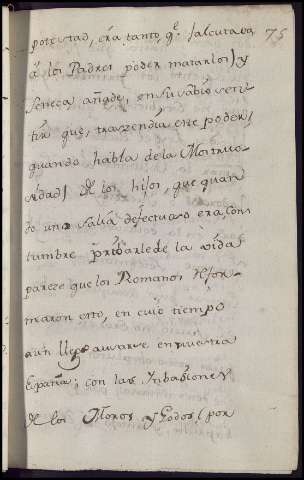 potestad, era tanto, q.e facultava 75
á los Padres poder matarlos, y
Seneca añade, en su sabio sen
tir que, trazendia este poder,
quando habla de la Mostruo
sidad de los hijos, que quan
do uno Salia defectuoso era, Cos
tumbre pribarle de la vida,
pareze que los Romanos Refor
maron esto, en cuio tiempo
aun llego a usarse, en nuestra
España; con las Inbasiones
de los Moros y Godos, por